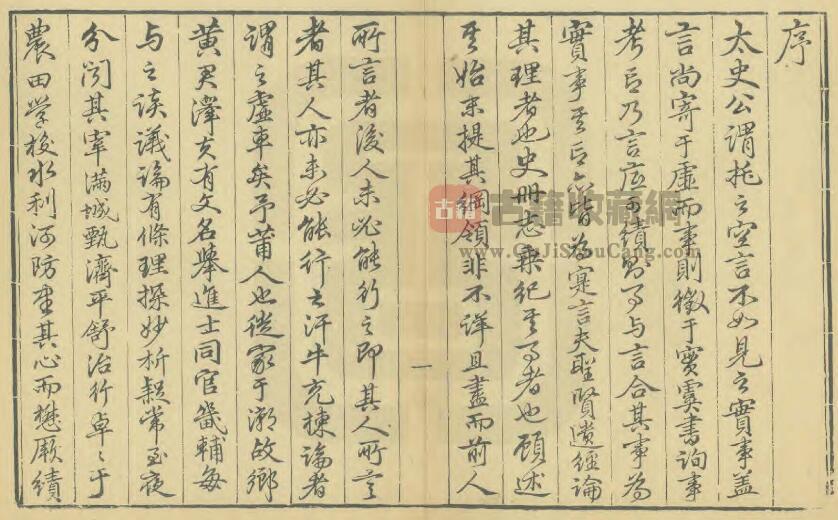 序
太史公謂托之空言不如見之實事蓋
言尚寄于虛而事則徵于實虞書詢事
考言乃言底可績則事与言合其事為
實事其言亦皆為寔言夫聖賢遺經論
其理者也史冊志乘紀其事者也顧述
其始末提其綱領非不詳且盡而前人
一
所言者後人未必能行之即其人所言
者其人亦未必能行之汗牛充棟論者
謂之虛車矣予莆人也徙家于潮故鄉
黃君澤夫有文名舉進士同官畿輔每
与之談議論有條理探妙析疑常至夜
分闻其宰滿城甄濟平舒治行卓〻于
農田学校水利河防尽其心而懋厥績
古籍 古籍收藏網
www.GuJiShouCang.com